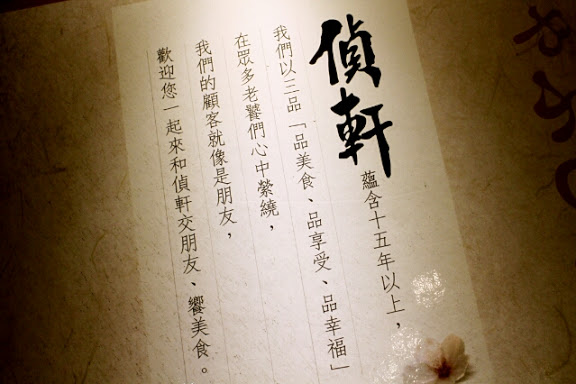 偵軒蘊含十五年以上，
我們以三品「品美食、品享受、品幸福」
在眾多老饕們心中縈繞，
我們的顧客就像是朋友，
歡迎您一起來和偵軒交朋友、饗美食。